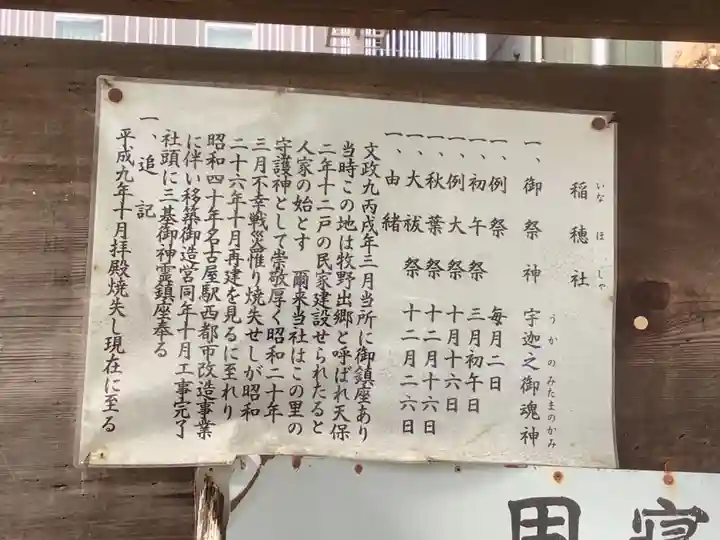 稲穂社
いなほしゃ
一、御祭神　宇迦之御魂神
うかのみたまのかみ
一、例祭　毎月二日
一、初午祭　三月初午日
一、例大祭　十月十六日
一、秋葉祭　十二月十六日
一、大祓祭　十二月二六日
一、由緒
文政九丙戌年三月当所に御鎮座あり
当時この地は牧野出郷と呼ばれ天保
二年十二戸の民家建設せられたると
人家の始とす　爾来当社はこの里の
守護神として崇敬厚く昭和二十年
三月不幸戦災罹り焼失せしが昭和
二十六年十月再建を見るに至れり
昭和四十年名古屋駅西都市改造事業
に伴い移築御造営同年十月工事完了
社頭に三基御神霊鎮座奉る
一、追記
平成九年十月拝殿焼失し現在に至る